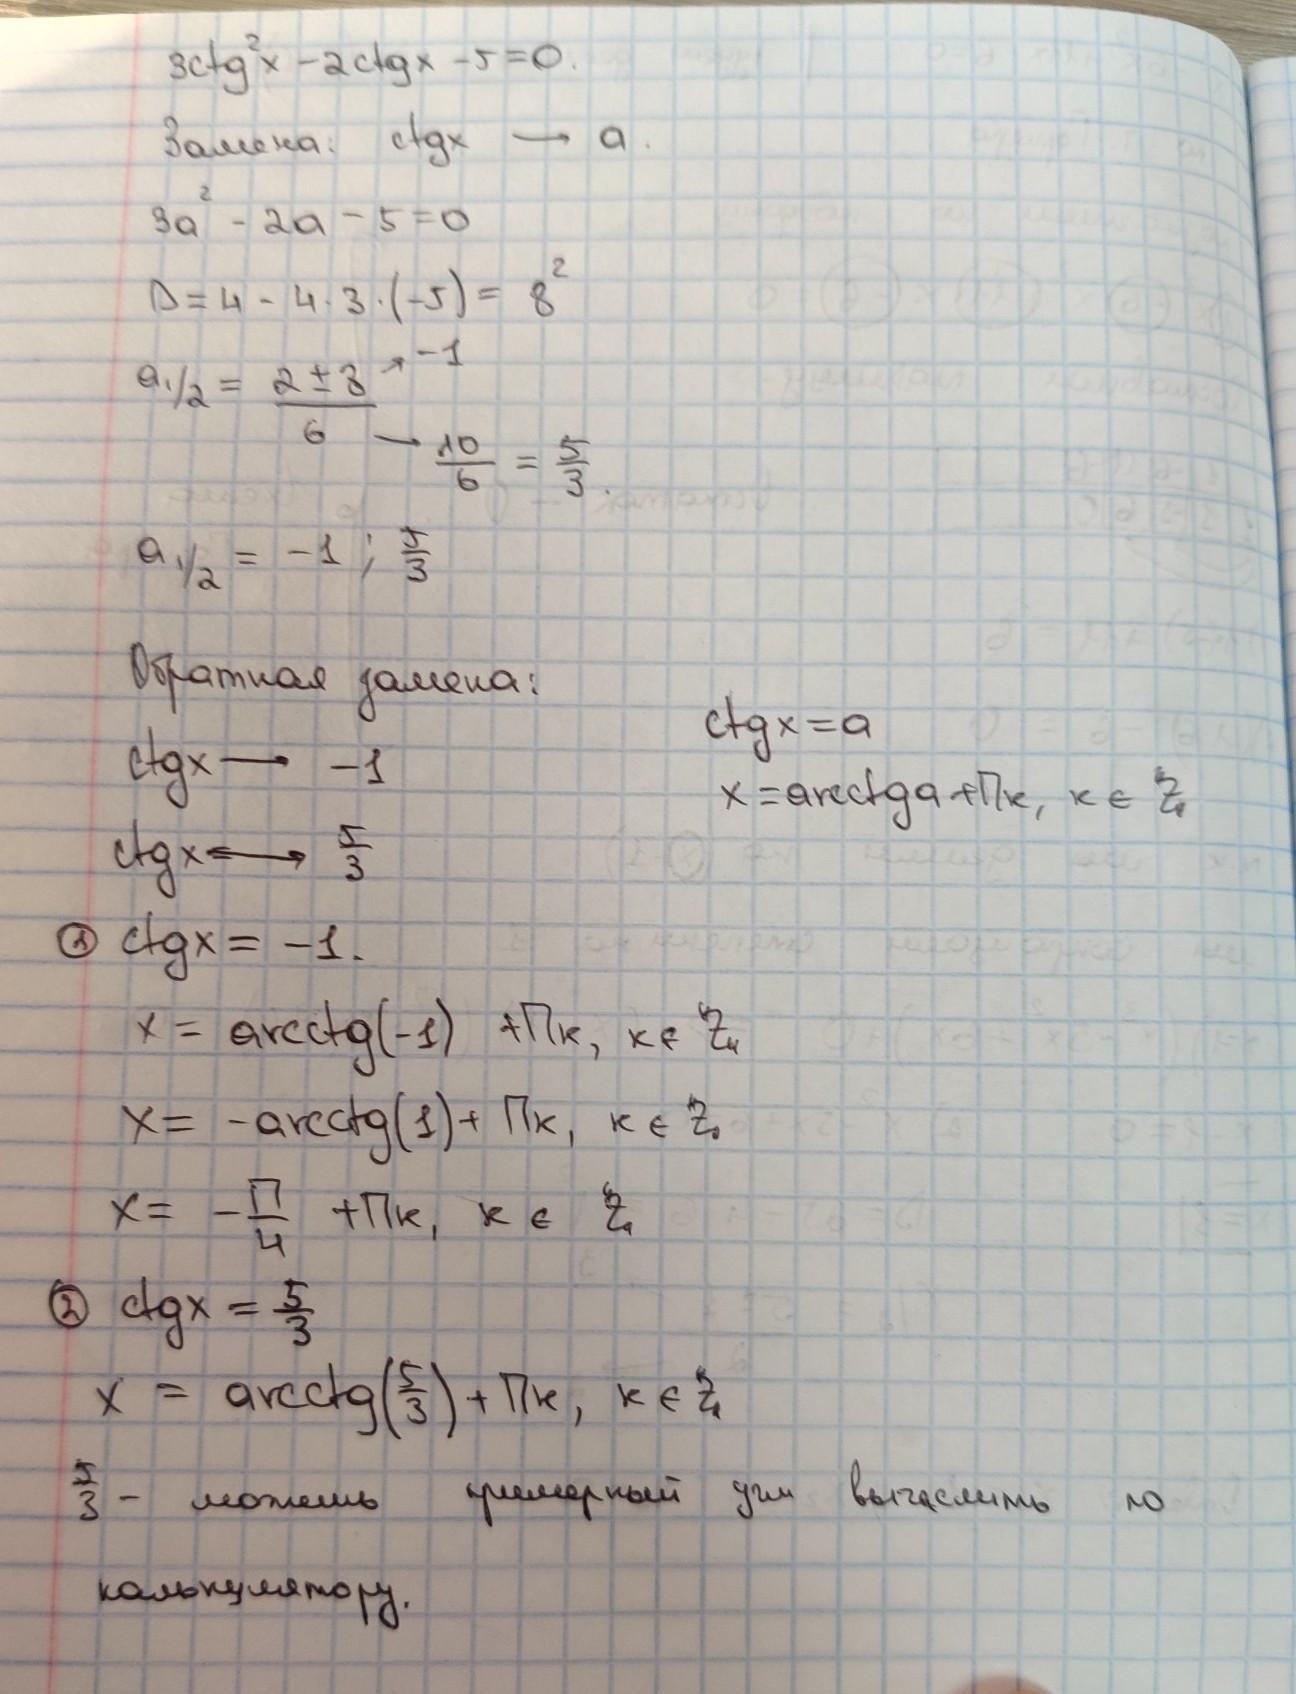 3ctg²x - 2ctgx - 5 = 0.
Замена: ctgx → a.
3a² - 2a - 5 = 0
D = 4 - 4·3·(-5) = 8²
a₁/₂ = (2 ± 8)/6 → -1
→ 10/6 = 5/3.
a₁/₂ = -1; 5/3
Обратная замена:
ctgx → -1
ctgx → 5/3
ctgx = a
x = arcctga + Пк, к ∈ Z
① ctgx = -1.
x = arcctg(-1) + Пк, к ∈ Z
x = -arcctg(1) + Пк, к ∈ Z
x = -П/4 + Пк, к ∈ Z
② ctgx = 5/3
x = arcctg(5/3) + Пк, к ∈ Z
5/3 - можешь примерный угол вычислить по
калькулятору.